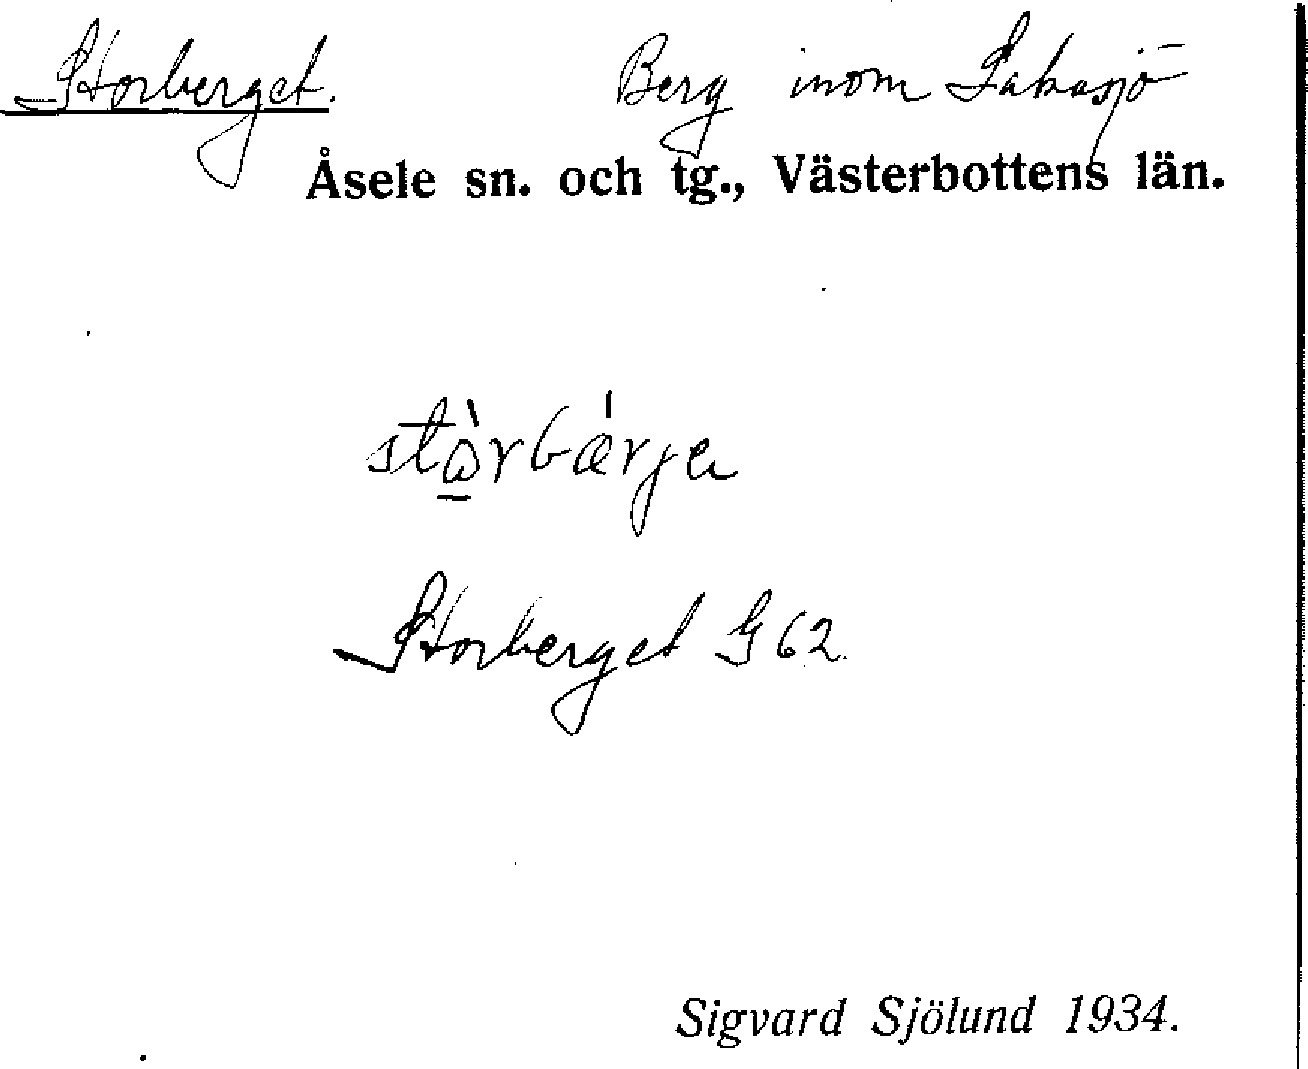 Storberget. Berg inom Laksjö
Åsele sn. och tg., Västerbottens län.
stɷ̱̀rbǽrjen
Storberget G 62.
Sigvard Sjölund 1934.